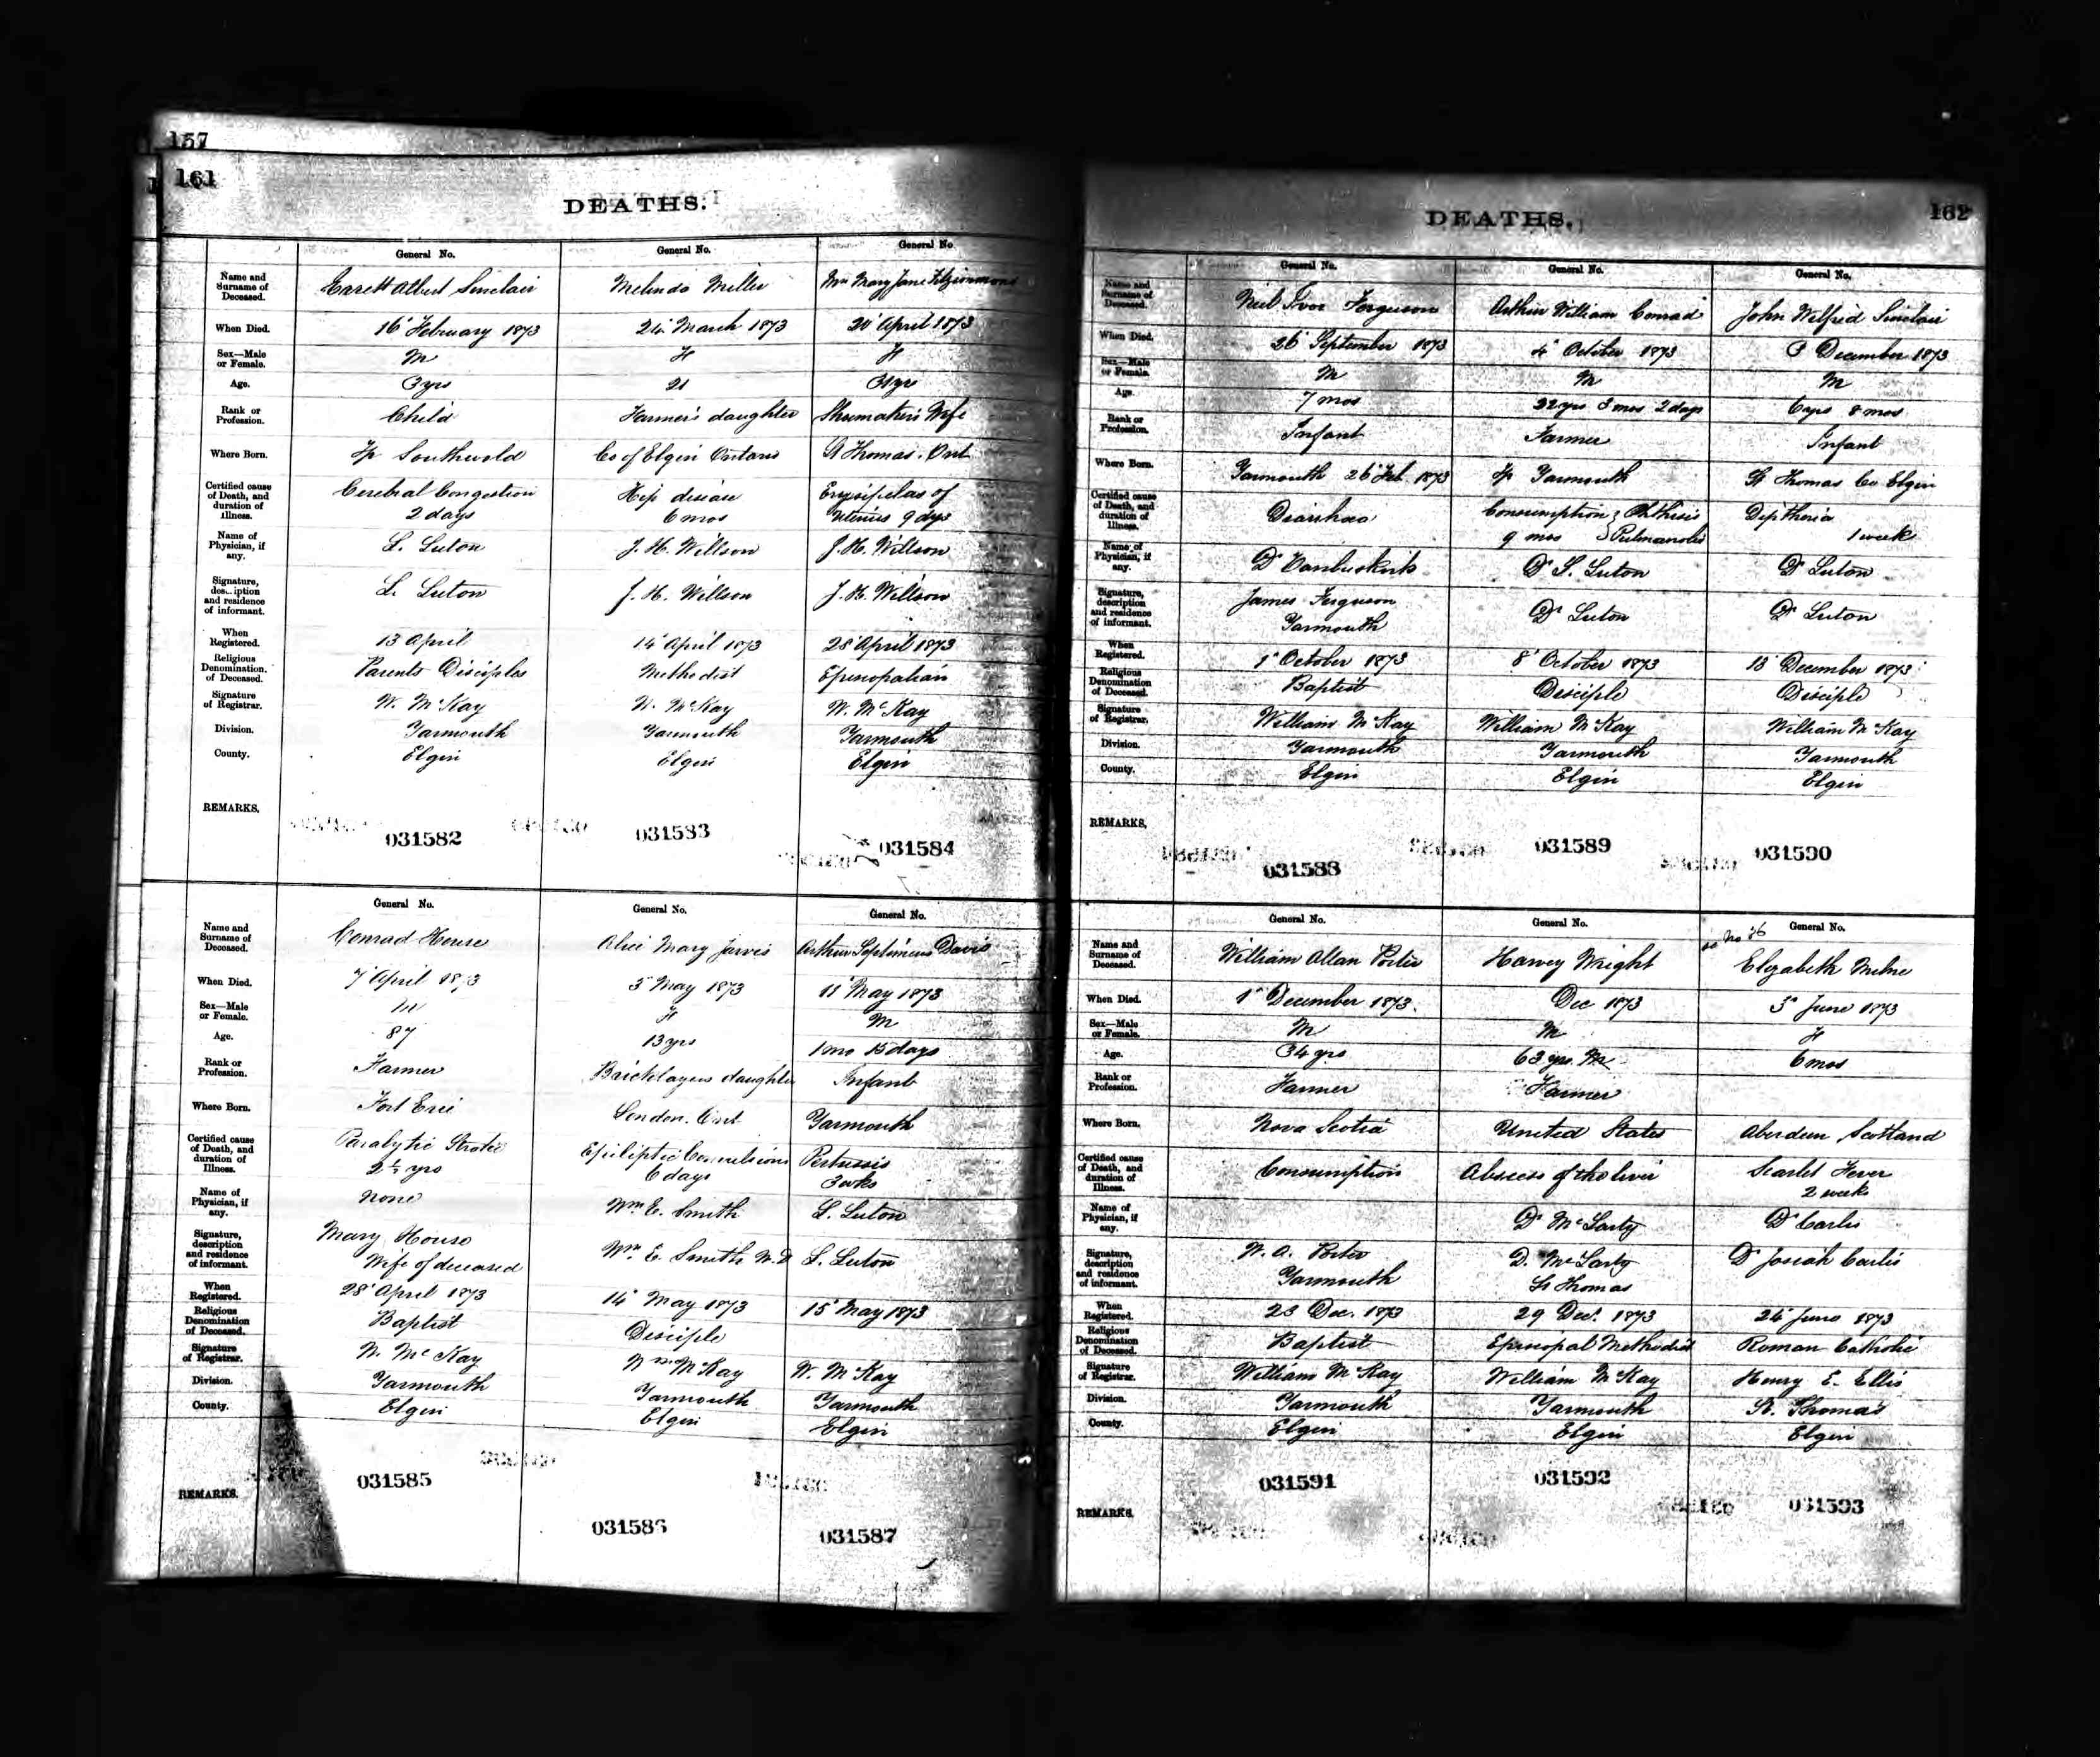 157
161
DEATHS.
General No. General No. General No.
Name and Surname of Deceased. Garett Albert Sinclair Melinda Miller Mrs Mary Jane Fitzsimmons
When Died. 16" February 1873 24" March 1873 20" April 1873
Sex—Male or Female. M F F
Age. 3 yrs 21 31 yrs
Rank or Profession. Child Farmer's daughter Shoemaker's Wife
Where Born. Tp Southwold Co of Elgin Ontario St Thomas. Ont
Certified cause of Death, and duration of Illness. Cerebral Congestion 2 days Hip disease 6 mos Erysipelas of Uterus 9 dys
Name of Physician, if any. L. Luton J. H. Willson J. H. Willson
Signature, description and residence of informant. L. Luton J. H. Willson J. H. Willson
When Registered. 13 April 14" April 1873 28" April 1873
Religious Denomination of Deceased. Parents Disciples Methodist Episcopalian
Signature of Registrar. W. McKay W. McKay W. McKay
Division. Yarmouth Yarmouth Yarmouth
County. Elgin Elgin Elgin
REMARKS.
031582 031583 031584
General No. General No. General No.
Name and Surname of Deceased. Conrad House Alice Mary Jarvis Arthur Septimus Davis
When Died. 7" April 1873 5" May 1873 11" May 1873
Sex—Male or Female. M F M
Age. 87 13 yrs 1 mo 15 days
Rank or Profession. Farmer Bricklayers daughter Infant
Where Born. Fort Erie London. Ont Yarmouth
Certified cause of Death, and duration of Illness. Paralytic Stroke 2½ yrs Epileptic Convulsions 6 days Pertussis 3 wks
Name of Physician, if any. none Wm E. Smith L. Luton
Signature, description and residence of informant. Mary House Wife of deceased Wm E. Smith M.D L. Luton
When Registered. 28" April 1873 14" May 1873 15" May 1873
Religious Denomination of Deceased. Baptist Disciple
Signature of Registrar. W. McKay Wm McKay W. McKay
Division. Yarmouth Yarmouth Yarmouth
County. Elgin Elgin Elgin
REMARKS.
031585 031586 031587
162
DEATHS.
General No. General No. General No.
Name and Surname of Deceased. Neil Ivor Ferguson Arthur William Conrad John Wilfrid Sinclair
When Died. 26" September 1873 4" October 1873 3 December 1873
Sex—Male or Female. M M M
Age. 7 mos 22 yrs 3 mos 2 days 6 yrs 8 mos
Rank or Profession. Infant Farmer Infant
Where Born. Yarmouth 26" Feb. 1873 Tp Yarmouth St Thomas Co Elgin
Certified cause of Death, and duration of Illness. Diarrhoea Consumption; Phthisis 9 mos Pulmonalis Diptheria 1 week
Name of Physician, if any. Dr Vanbuskirk Dr L. Luton Dr Luton
Signature, description and residence of informant. James Ferguson Yarmouth Dr Luton Dr Luton
When Registered. 1" October 1873 8" October 1873 13" December 1873
Religious Denomination of Deceased. Baptist Disciple Disciple
Signature of Registrar. William McKay William McKay William McKay
Division. Yarmouth Yarmouth Yarmouth
County. Elgin Elgin Elgin
REMARKS.
031588 031589 031590
General No. General No. General No.
Name and Surname of Deceased. William Allan Porter Harvey Wright Elizabeth Milne
When Died. 1" December 1873. Dec 1873 5" June 1873
Sex—Male or Female. M M F
Age. 34 yrs 63 yrs. 6 mos
Rank or Profession. Farmer Farmer
Where Born. Nova Scotia United States Aberdeen Scotland
Certified cause of Death, and duration of Illness. Consumption Abscess of the liver Scarlet Fever 2 weeks
Name of Physician, if any. Dr McLarty Dr Corlis
Signature, description and residence of informant. W. A. Porter Yarmouth D. McLarty St Thomas Dr Josiah Corlis
When Registered. 23 Dec. 1873 29 Dec. 1873 24" June 1873
Religious Denomination of Deceased. Baptist Episcopal Methodist Roman Catholic
Signature of Registrar. William McKay William McKay Henry E. Ellis
Division. Yarmouth Yarmouth St. Thomas
County. Elgin Elgin Elgin
REMARKS.
031591 031592 031593